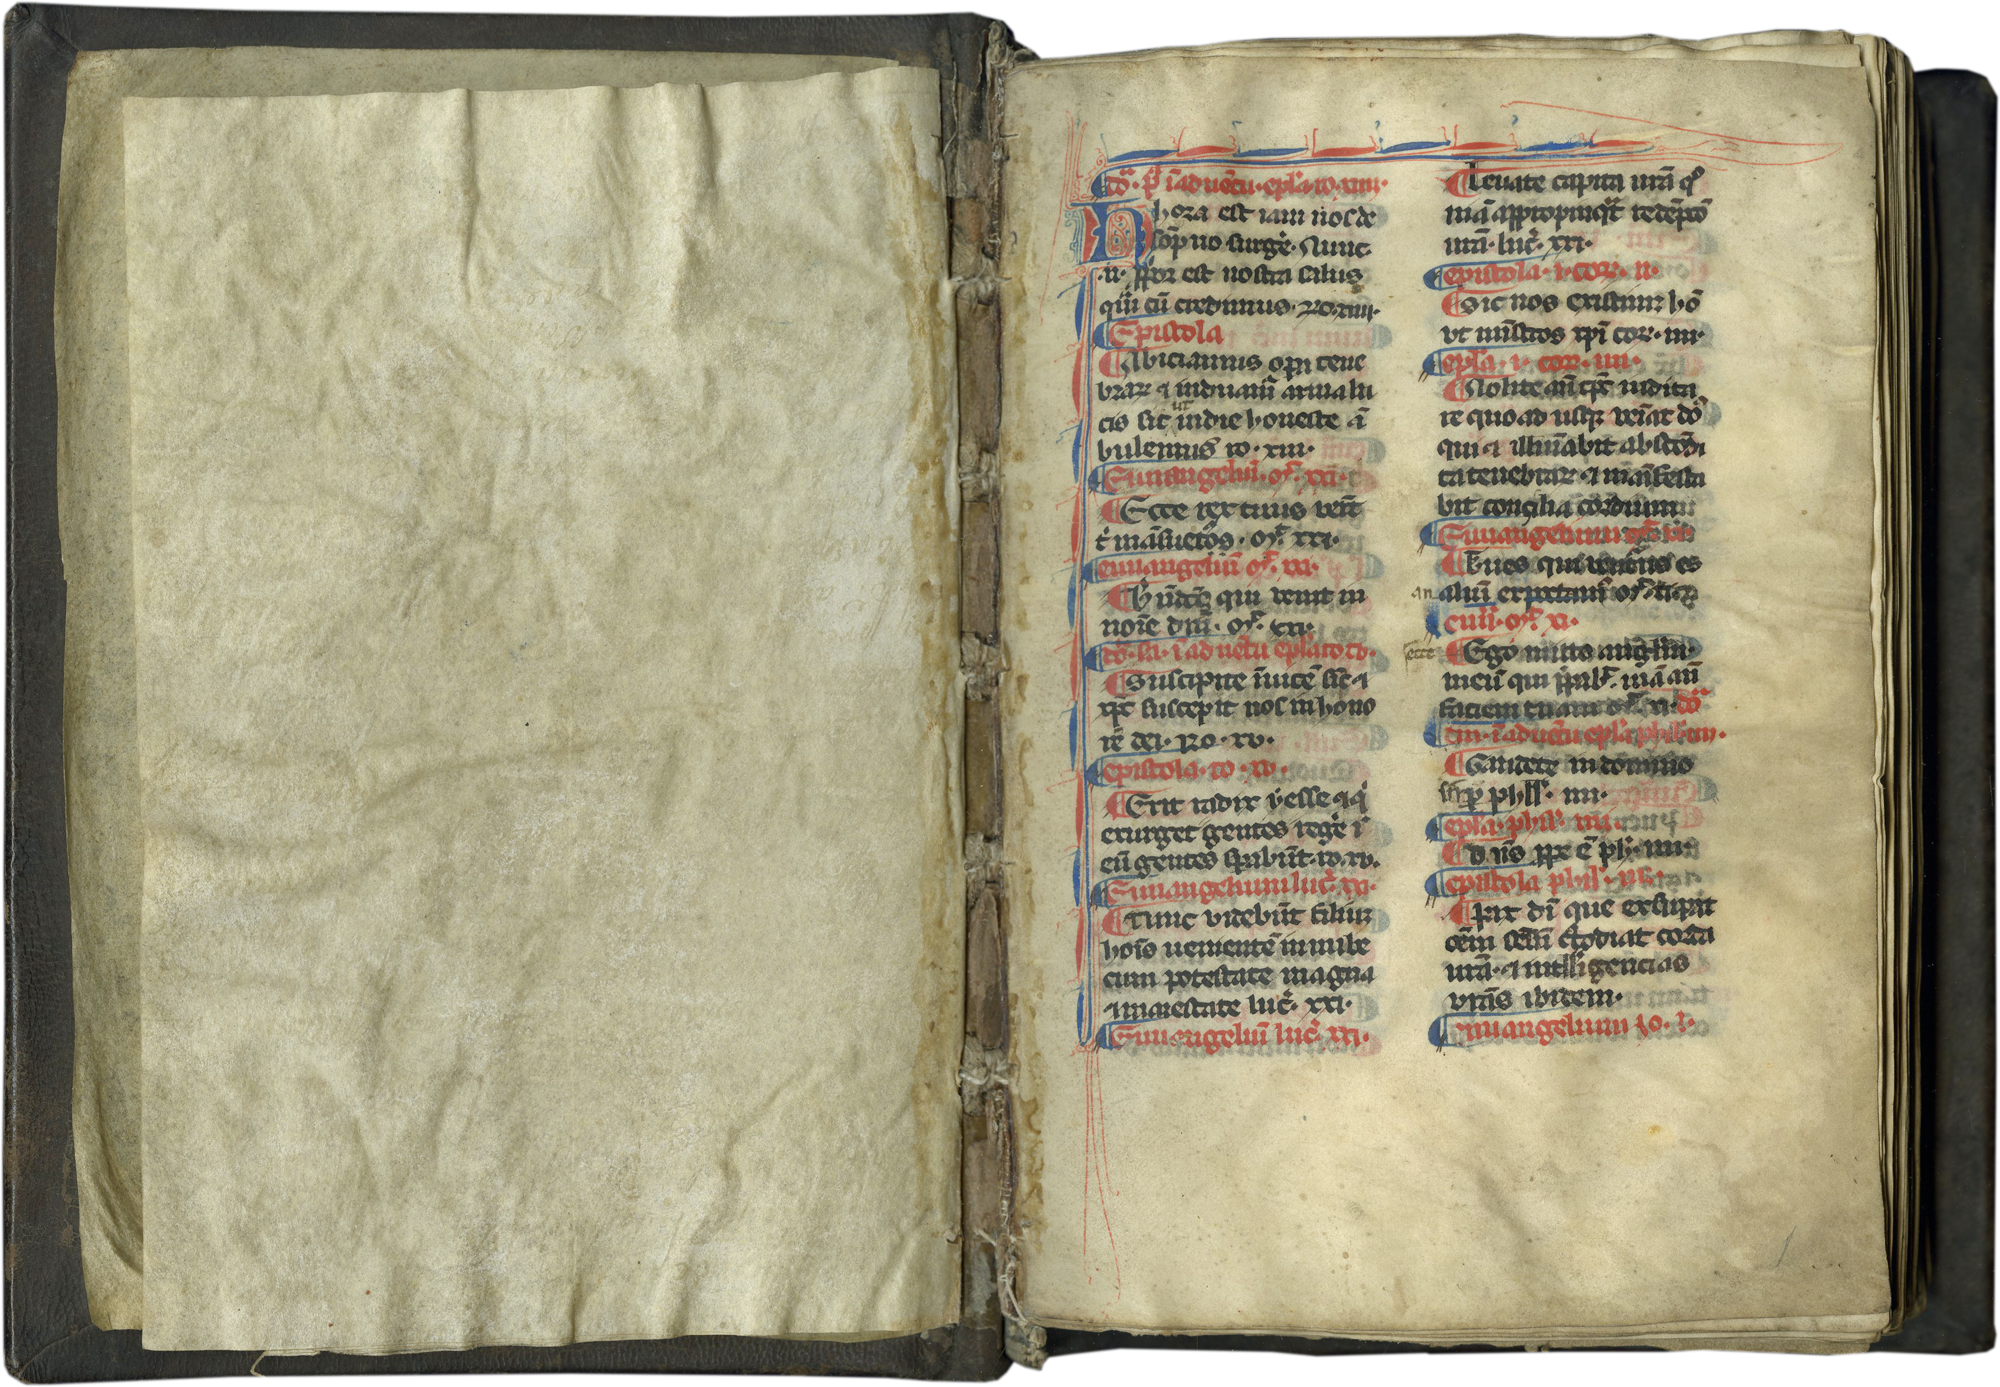 dō. p̄. ī aduētu. epl̄a. ro. xiii.
Hhora est iam nos de
sōpno surge. Nunc
.n. ꝓpior est nostra salus
quā cū credimus. Ro. xiii.
Epistola
Abiciamus opa tene
braꝝ ⁊ induam̄ arma lu
cis sic ut in die honeste ā
bulemus ro. xiii.
Euuangeliū. mͭ. xxi.
Ecce rex tuus venit
t māsuetꝰ. mͭ. xxi.
euuangeliū mͭ. xxi.
Bn̄dcꝰ qui venit in
noīe dn̄i. mͭ. xxi.
dō. sa. ī aduētu epl̄a ro. xv.
Suscipite īuicē sic ⁊
xp̄c suscepit nos in hono
rē dei. Ro. xv.
epistola. ro. xv.
Erit radix yesse ⁊ q̄
exurget gentes regē ī
eū gentes spabūt. ro. xv.
Euuangelium luc̄. xxi.
Tunc videbūt filiū
hoīs uenientē in nube
cum potestate magna
⁊ maiestate luc̄. xxi.
Euuangeliū luc̄. xxi.
Leuate capita ur̄a qm̄
appropinqt redēptō
ur̄a. luc̄. xxi.
epistola. i. cor. iiii.
Sic nos existimꝫ hō
vt mīstros xp̄i cor. iiii.
epl̄a. i. cor. iiii.
Nolite an̄ tp̄c iudica
re quoad usq; veniat dō
qui ⁊ illūabit abscōdi
ta tenebraꝝ ⁊ māifesta
bit concilia cordium
Euuangelium mͭ. xi.
Tu es qui uenturꝰ es
an
alium expectamꝰ mͭ. xi.
euu̅. mͭ. xi.
ecce
Ego mitto angelum
meū qui p̄pabit uiā an̄
faciem tuam mͭ. xi. dō
tīa. ī aduētu epl̄a phil. iiii.
Gaudete in domino
semp phil̄. iiii.
epl̄a. phil̄. iiii.
Dn̄s ꝓpe ē phi. iiii.
epistola phil. iiii.
Pax dī que exsupat
oēm sēsū c̄todiat corda
ur̄a. ⁊ intelligencias
vr̄as ibidem.
Euuangelium Jo. i.